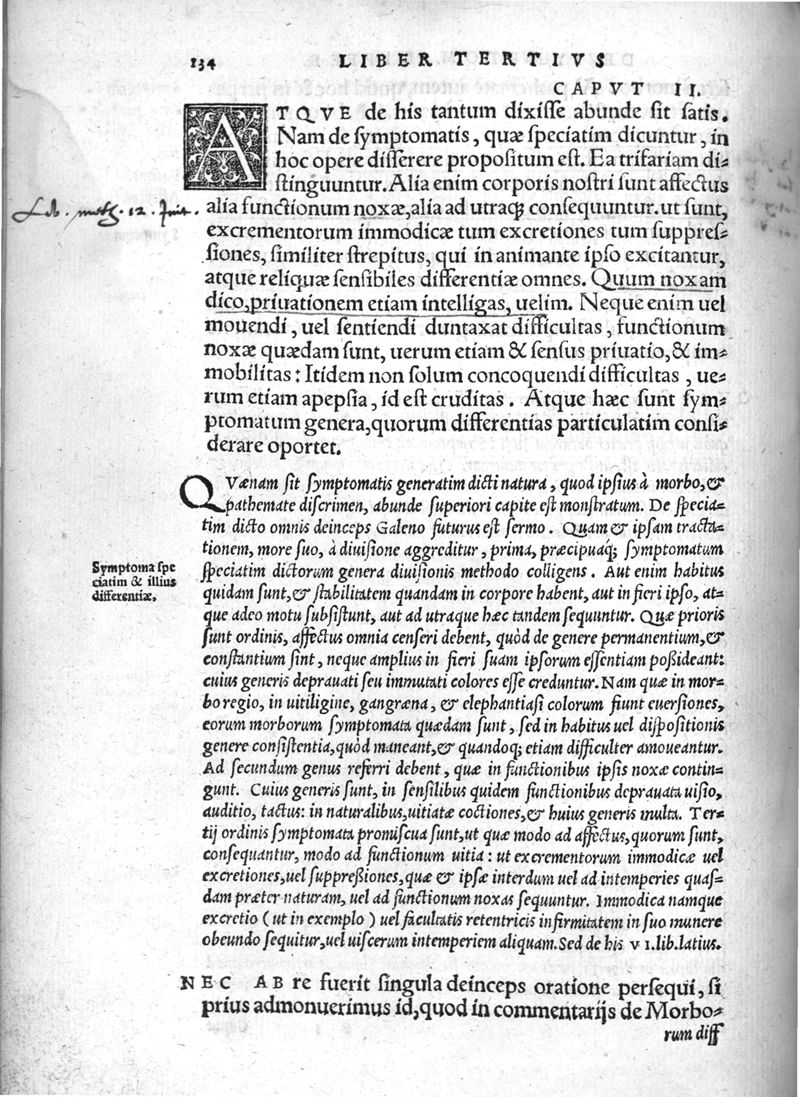 134 LIBER TERTIVS
CAPVT II.
ATQVE de his tantum dixisse abunde sit satis.
Nam de symptomatis, quæ speciatim dicuntur, in
hoc opere disserere propositum est. Ea trifariam di-
stinguuntur. Alia enim corporis nostri sunt affectus
Lib. meth. 12.
alia functionum noxæ, alia ad utraq; consequuntur. ut sunt,
excrementorum immodicæ tum excretiones tum suppres-
siones, similiter strepitus, qui in animante ipso excitantur,
atque reliquæ sensibiles differentiæ omnes. Quum noxam
dico, priuationem etiam intelligas, uelim. Neque enim uel
mouendi, uel sentiendi duntaxat difficultas, functionum
noxæ quædam sunt, uerum etiam & sensus priuatio, & im-
mobilitas: Itidem non solum concoquendi difficultas, ue-
rum etiam apepsia, id est cruditas. Atque hæc sunt sym-
ptomatum genera, quorum differentias particulatim consi-
derare oportet.
QVænam sit symptomatis generatim dicti natura, quod ipsius à morbo, &
pathemate discrimen, abunde superiori capite est monstratum. De specia-
tim dicto omnis deinceps Galeno futurus est sermo. Quam & ipsam tracta-
tionem, more suo, à diuisione aggreditur, prima, præcipuáq; symptomatum
Symptoma spe
ciatim & illius
differentiæ.
speciatim dictorum genera diuisionis methodo colligens. Aut enim habitus
quidam sunt, & stabilitatem quandam in corpore habent, aut in fieri ipso, at-
que adeo motu subsistunt, aut ad utraque hæc tandem sequuntur. Quæ prioris
sunt ordinis, affectus omnia censeri debent, quòd de genere permanentium, &
constantium sint, neque amplius in fieri suam ipsorum essentiam poßideant:
cuius generis deprauati seu immutati colores esse creduntur. Nam quæ in mor-
bo regio, in uitiligine, gangræna, & elephantiasi colorum fiunt euersiones,
eorum morborum symptomata quædam sunt, sed in habitus uel dispositionis
genere consistentia, quòd maneant, & quandoq; etiam difficulter amoueantur.
Ad secundum genus referri debent, quæ in functionibus ipsis noxæ contin-
gunt. Cuius generis sunt, in sensilibus quidem functionibus deprauata uisio,
auditio, tactus: in naturalibus, uitiatæ coctiones, & huius generis multa. Ter-
tij ordinis symptomata promiscua sunt, ut quæ modo ad affectus, quorum sunt,
consequantur, modo ad functionum uitia: ut excrementorum immodicæ uel
excretiones, uel suppreßiones, quæ & ipsæ interdum uel ad intemperies quas-
dam præter naturam, uel ad functionum noxas sequuntur. Immodica namque
excretio (ut in exemplo) uel facultatis retentricis infirmitatem in suo munere
obeundo sequitur, uel uiscerum intemperiem aliquam. Sed de his VI. lib. latius.
NEC AB re fuerit singula deinceps oratione persequi, si
prius admonuerimus id, quod in commentarijs de Morbo-
rum diff